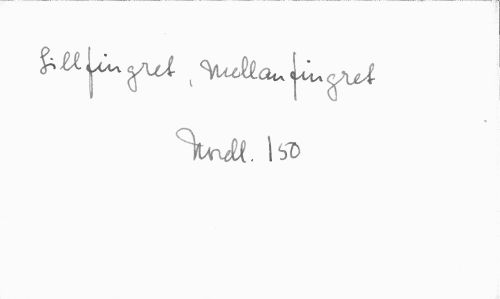 Lillfingret, Mellanfingret
Nordl. 150